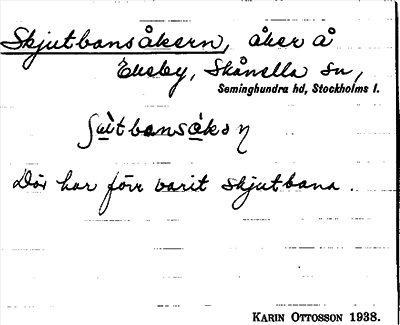 Skjutbansåkern, åker å
Ekeby, Skånella sn,
Seminghundra hd, Stockholms l.
Där har förr varit skjutbana.
KARIN OTTOSSON 1938.